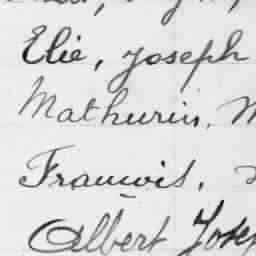 Elie, Joseph
Mathurin,
François,
Albert Joseph